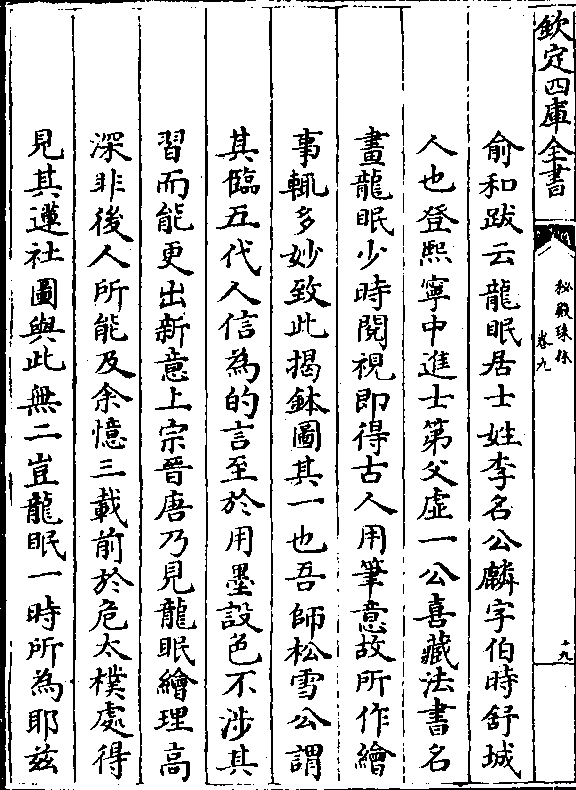 欽定四庫全書
秘殿珠林
卷九
十九
俞和跋云龍眠居士姓李名公麟字伯時舒城
人也登熙寧中進士第父虛一公喜藏法書名
畫龍眠少時閱視即得古人用筆意故所作繪
事輒多妙致此揭鉢圖其一也吾師松雪公謂
其臨五代人信為的言至於用墨設色不涉其
習而能更出新意上宗晉唐乃見龍眠繪理高
深非後人所能及余憶三載前於危太樸處得
見其蓮社圖與此無二豈龍眠一時所為耶兹